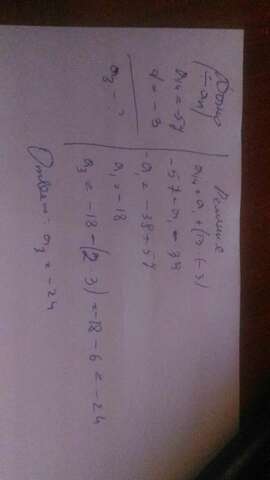 Дано
÷ an
a14 = -57
d = -3
a3 - ?
Решение
a14 = a1 + (13 · (-3)
-57 = a1 - 39
-a1 = -39 + 57
a1 = -18
a3 = -18 - (2 · 3) = -18 - 6 = -24
Ответ: a3 = -24